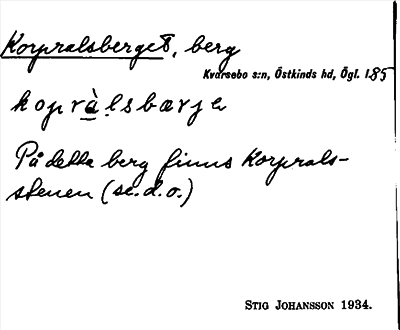 Korpralsberget, berg
Kvarsebo s:n, Östkinds hd, Ögl. 185
koprạ̀lsbærje
På detta berg finns Korprals-
stenen (se.d.o.)
STIG JOHANSSON 1934.